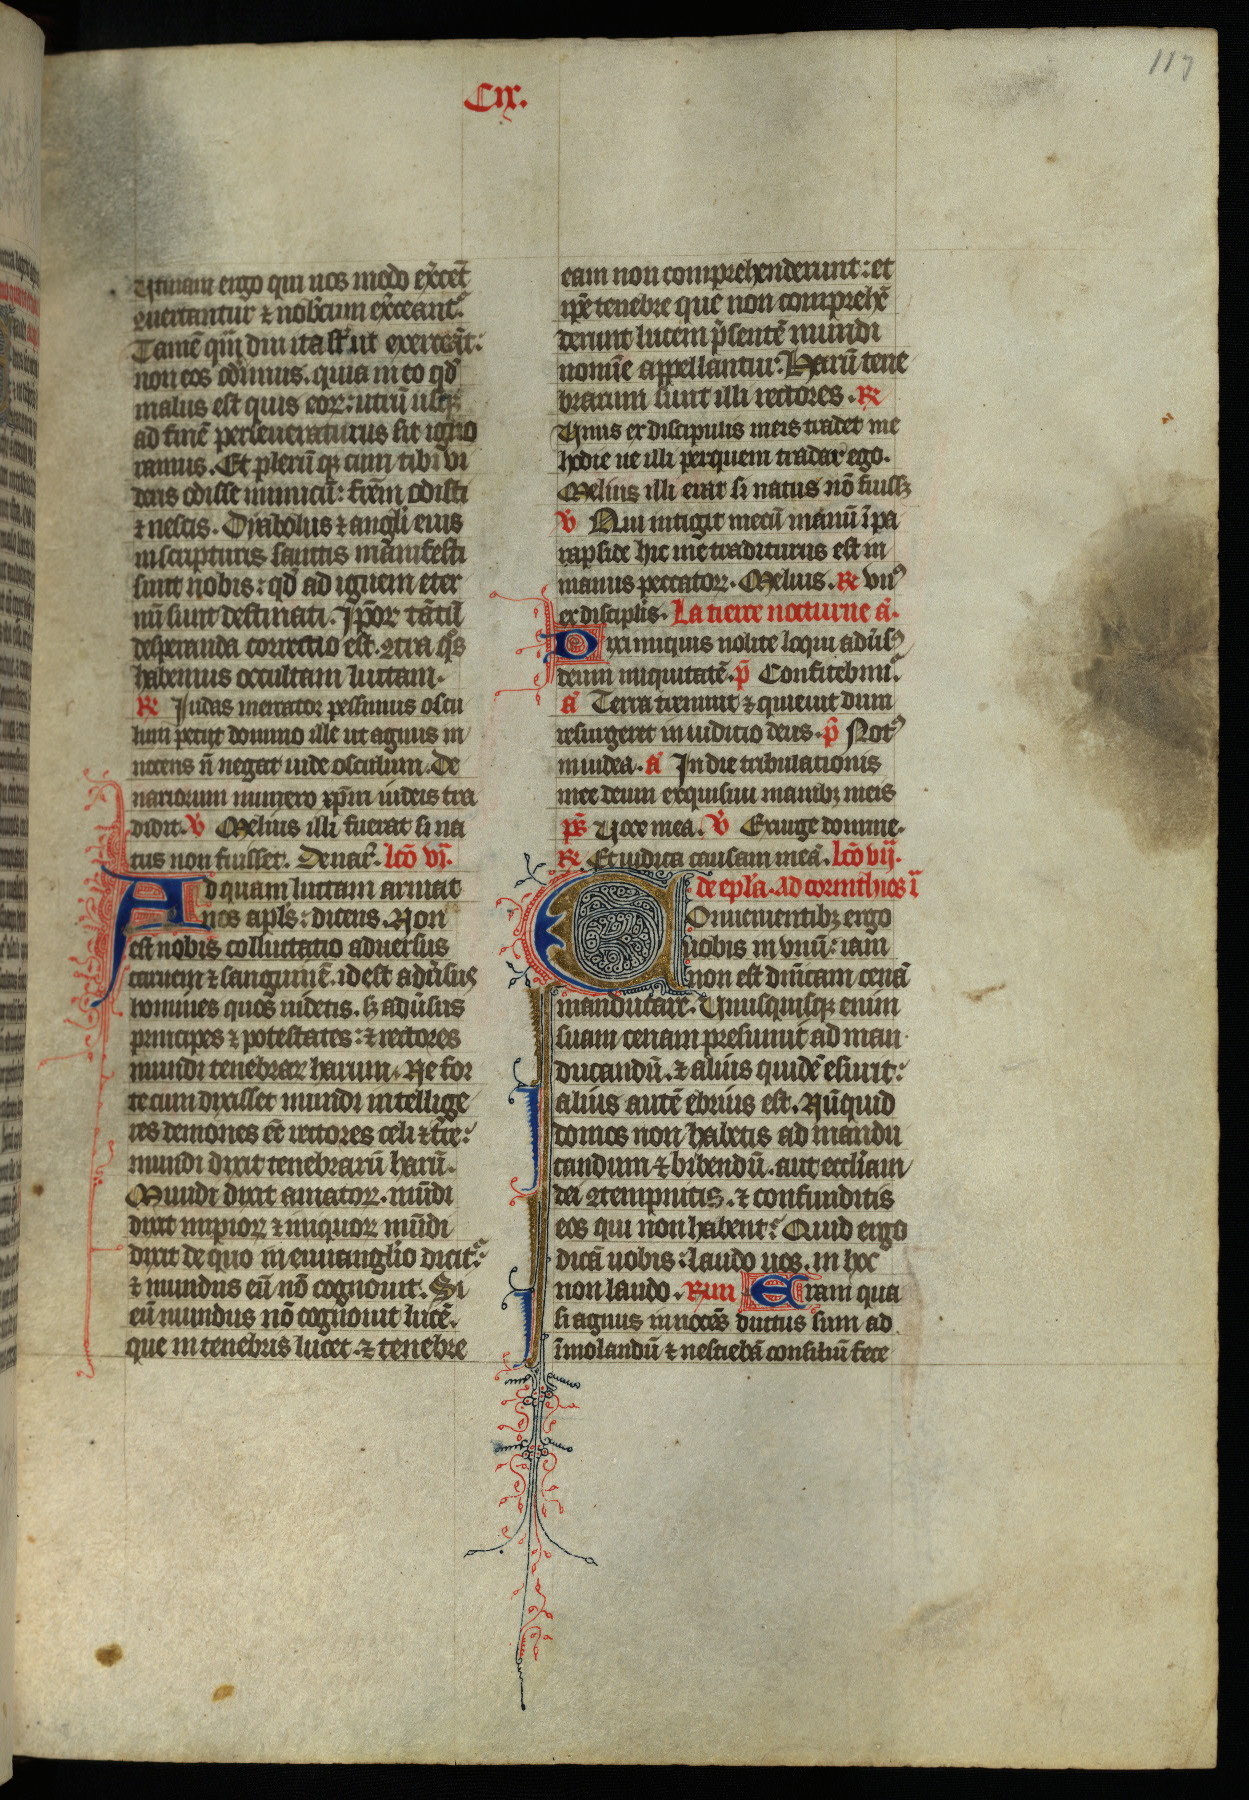 117
Cix.
Utinam ergo qui nos modo exᷓcet̃
ꝯuertantur ⁊ nobiscum exᷓceant᷑.
Tamē qm̄ diu ita st̄ ut exerceāt:
non eos oderimus. quia in eo qd̄
malus est quis eoꝝ: utrū usqꝫ
ad finē perseueraturus sit igno
ramus. Et plerūqꝫ cum tibi vi
deris odisse inimicū: frēm odisti
⁊ nescis. Dyabolus ⁊ angli eius
in scripturis sanctis manifesti
sunt nobis: qd̄ ad ignem eter
nū sunt destinati. Ipōꝝ tātū
desperanda correctio est. ꝯtra q̄s
habemus occultam luctam.
℟ Iudas mercator pessimus oscu
lum petiit domino ille ut agnus in
nocens n̄ negat iude osculum. De
nariorum numero xp̄m iudeis tra
didit. ℣ Melius illi fuerat si na
tus non fuisset. Denar᷑. lc̄o vj.
Ad quam luctam armat
nos apl̄s: dicens. Non
est nobis colluctatio aduersus
carnem ⁊ sanguinē. id est adūsus
homines quos uidetis. sꝫ adūsus
principes ⁊ potestates: ⁊ rectores
mundi tenebraꝝ harum. Ne for
te cum dixisset mundi intellige
res demones eē rectores celi ⁊ t̄re:
mundi dixit tenebrarū harū.
Mundi dixit amatoꝝ. mūdi
dixit impioꝝ ⁊ iniquoꝝ mūdi
dixit de quo in euuanglio dicit᷑.
⁊ mundus eū nō cognouit. Si
eū mundus nō cognouit lucē.
que in tenebris lucet. ⁊ tenebre
eam non comprehenderunt: et
ip̄e tenebre que non comprehē
derunt lucem p̄sentē mundi
nomīe appellantur: Harū tene
brarum sunt illi rectores. ℟
Unus ex discipulis meis tradet me
hodie ue illi per quem tradar ego.
Melius illi erat si natus nō fuissꝫ
℣ Qui intigit mecū manū ī pa
rapside hic me traditurus est in
manus peccatoꝝ. Melius. ℟ vnꝰ
ex disciplis. La tierce nocturne ā.
Dixi iniquis nolite loqui adūsꝰ
deum iniquitatē. p̄ Confitebim᷑.
ā Terra tremuit ⁊ quieuit dum
resurgeret in iudicio deus. p̄ Notꝰ
in iudea. ā In die tribulationis
mee deum exquisiui manibꝫ meis
p̄s Uoce mea. ℣ Exurge domine.
℟ Et iudica causam meā. lc̄o vij.
de epl̄a. Ad corinthios ī
Conuenientibꝫ ergo
uobis in vnū: iam
non est dn̄icam cenā
manducare. Unusquisqꝫ enim
suam cenam presumit ad man
ducandū. ⁊ alius quidē esurit:
alius autē ebrius est. Nūquid
domos non habetis ad mandu
candum ⁊ bibendū. aut eccl̄iam
dei ꝯtempnitis. ⁊ confunditis
eos qui non habent: Quid ergo
dicā uobis: laudo uos. in hoc
non laudo. Run Eram qua
si agnus innocēs ductus sum ad
īmolandū ⁊ nesciebā consiliū fece